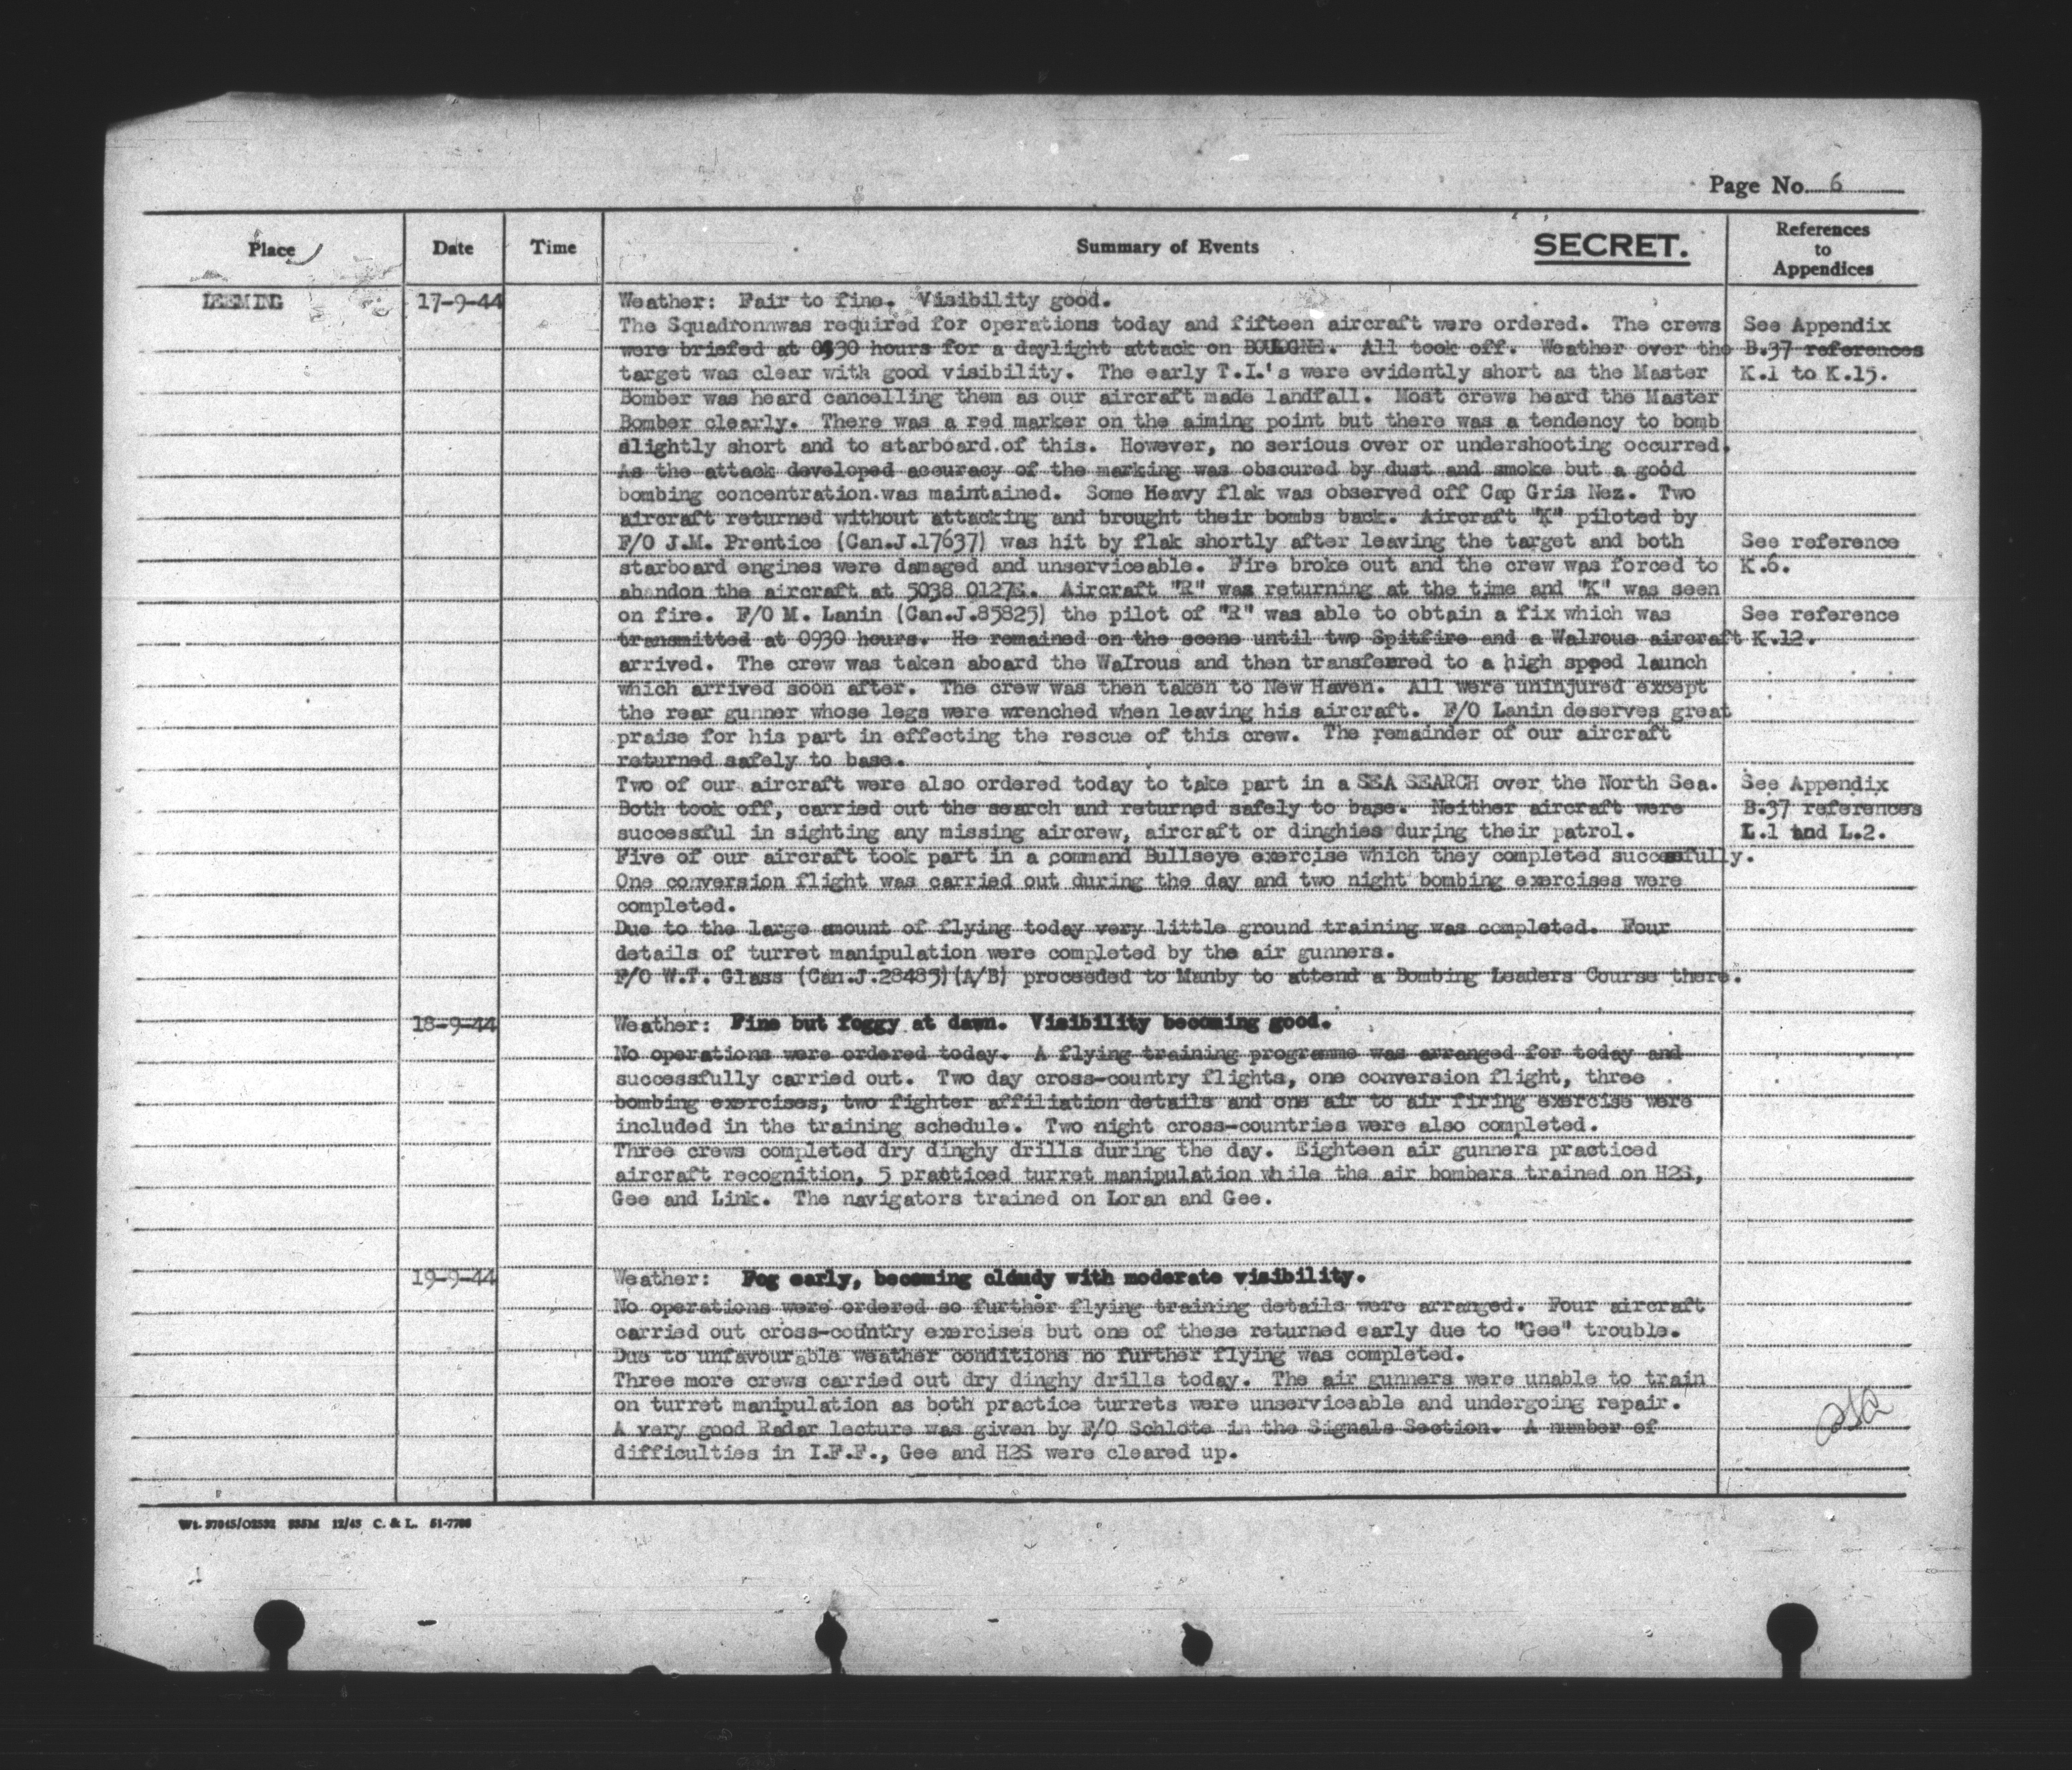 Page No. 6
Place Date Time Summary of Events SECRET. References to Appendices
LEEMING 17-9-44 Weather: Fair to fine. Visibility good.
The Squadronnwas required for operations today and fifteen aircraft were ordered. The crews See Appendix
were briefed at 0430 hours for a daylight attack on BOULOGNE. All took off. Weather over the B.37 references
target was clear with good visibility. The early T.I.'s were evidently short as the Master K.1 to K.15.
Bomber was heard cancelling them as our aircraft made landfall. Most crews heard the Master
Bomber clearly. There was a red marker on the aiming point but there was a tendency to bomb
slightly short and to starboard of this. However, no serious over or undershooting occurred.
As the attack developed accuracy of the marking was obscured by dust and smoke but a good
bombing concentration was maintained. Some Heavy flak was observed off Cap Gris Nez. Two
aircraft returned without attacking and brought their bombs back. Aircraft "K" piloted by
F/O J.M. Prentice (Can.J.17637) was hit by flak shortly after leaving the target and both See reference
starboard engines were damaged and unserviceable. Fire broke out and the crew was forced to K.6.
abandon the aircraft at 5038 0127E. Aircraft "R" was returning at the time and "K" was seen
on fire. F/O M. Lanin (Can.J.85825) the pilot of "R" was able to obtain a fix which was See reference
transmitted at 0930 hours. He remained on the scene until two Spitfire and a Walrous aircraft K.12.
arrived. The crew was taken aboard the Walrous and then transferred to a high speed launch
which arrived soon after. The crew was then taken to New Haven. All were uninjured except
the rear gunner whose legs were wrenched when leaving his aircraft. F/O Lanin deserves great
praise for his part in effecting the rescue of this crew. The remainder of our aircraft
returned safely to base.
Two of our aircraft were also ordered today to take part in a SEA SEARCH over the North Sea. See Appendix
Both took off, carried out the search and returned safely to base. Neither aircraft were B.37 references
successful in sighting any missing aircrew, aircraft or dinghies during their patrol. L.1 and L.2.
Five of our aircraft took part in a command Bullseye exercise which they completed successfully.
One conversion flight was carried out during the day and two night bombing exercises were
completed.
Due to the large amount of flying today very little ground training was completed. Four
details of turret manipulation were completed by the air gunners.
F/O W.T. Glass (Can.J.28485)(A/B) proceeded to Manby to attend a Bombing Leaders Course there.
18-9-44 Weather: Fine but foggy at dawn. Visibility becoming good.
No operations were ordered today. A flying training programme was arranged for today and
successfully carried out. Two day cross-country flights, one conversion flight, three
bombing exercises, two fighter affiliation details and one air to air firing exercise were
included in the training schedule. Two night cross-countries were also completed.
Three crews completed dry dinghy drills during the day. Eighteen air gunners practiced
aircraft recognition, 5 practiced turret manipulation while the air bombers trained on H2S,
Gee and Link. The navigators trained on Loran and Gee.
19-9-44 Weather: Fog early, becoming cloudy with moderate visibility.
No operations were ordered so further flying training details were arranged. Four aircraft
carried out cross-country exercises but one of these returned early due to "Gee" trouble.
Due to unfavourable weather conditions no further flying was completed.
Three more crews carried out dry dinghy drills today. The air gunners were unable to train
on turret manipulation as both practice turrets were unserviceable and undergoing repair.
A very good Radar lecture was given by F/O Schlote in the Signals Section. A number of
difficulties in I.F.F., Gee and H2S were cleared up.
12/43 C. & L.